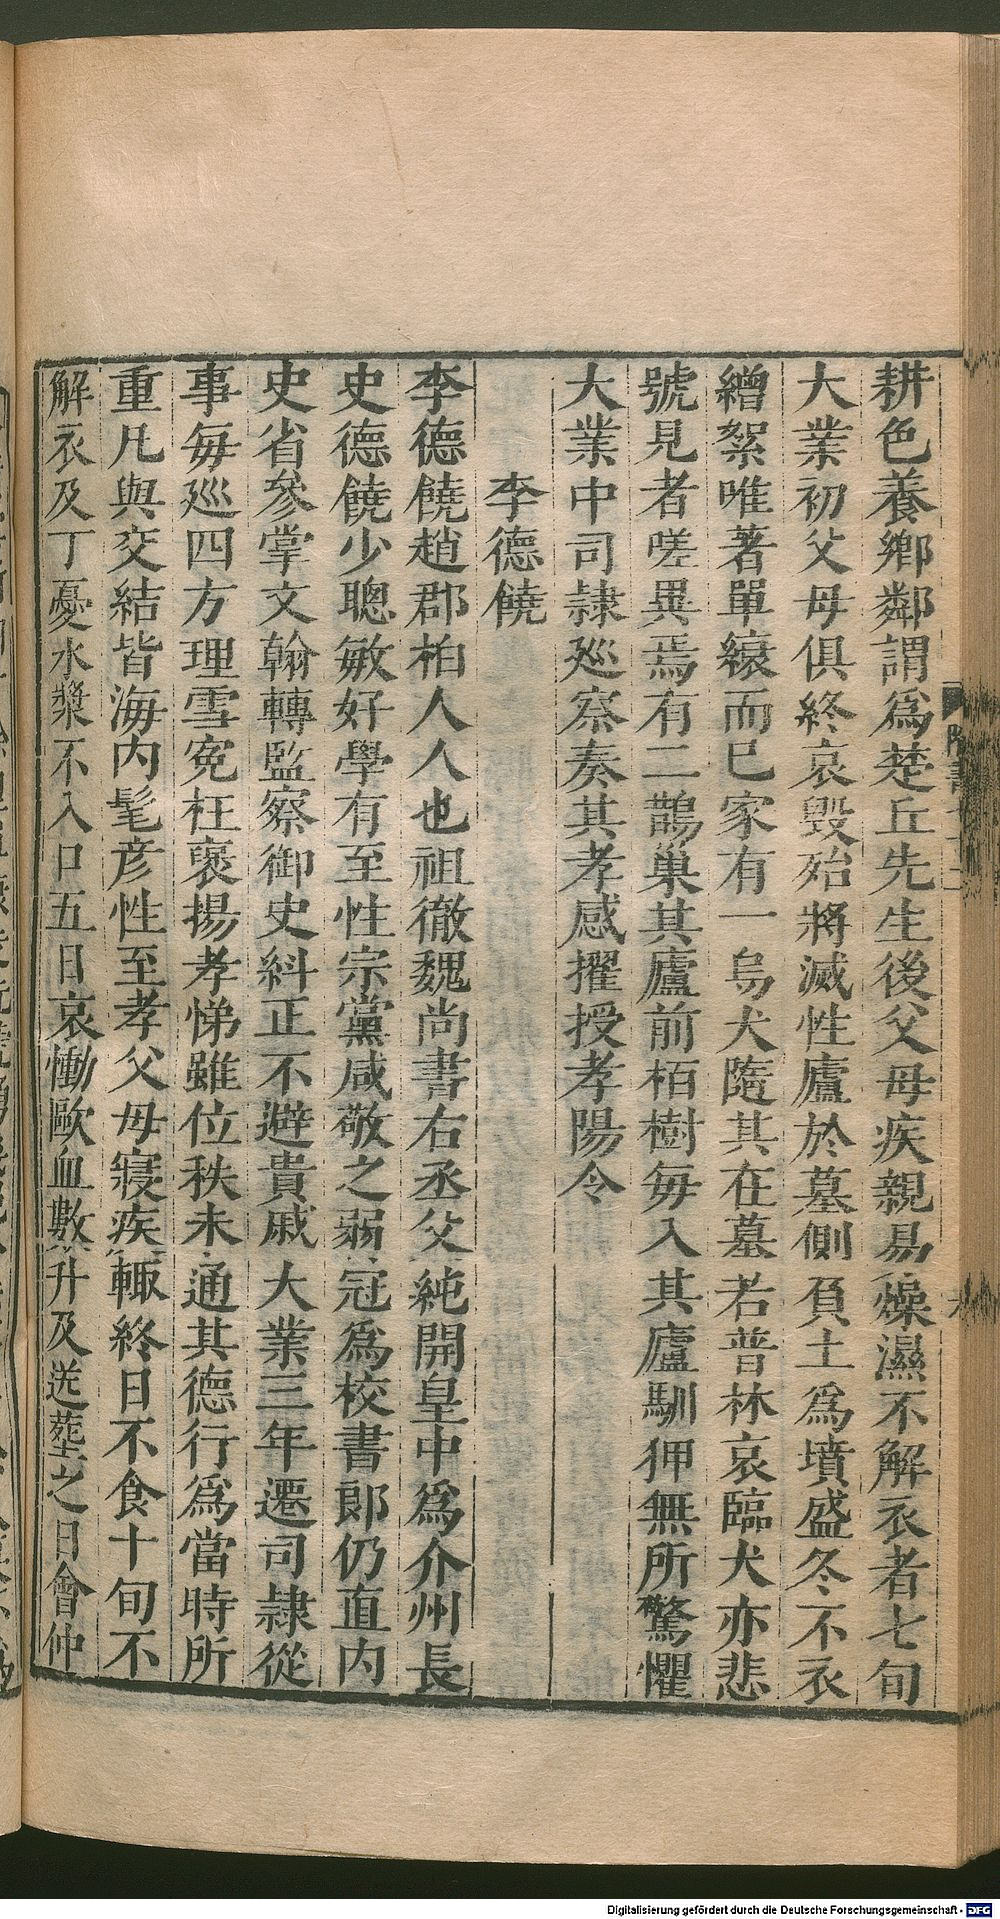 耕色養鄉鄰謂爲楚丘先生後父母疾親易燥濕不解衣者七旬
大業初父母俱終哀毀殆將滅性廬於墓側負土爲墳盛冬不衣
繒絮唯著單縗而已家有一烏犬隨其在墓若普林哀臨犬亦悲
號見者嗟異焉有二鵲巢其廬前栢樹每入其廬馴狎無所驚懼
大業中司隸廵察奏其孝感擢授孝陽令
李德饒
李德饒趙郡柏人人也祖徹魏尚書右丞父純開皇中爲介州長
史德饒少聰敏好學有至性宗黨咸敬之弱冠爲校書郞仍直內
史省參掌文翰轉監察御史糾正不避貴戚大業三年遷司隸從
事每廵四方理雪寃枉褒揚孝悌雖位秩未通其德行爲當時所
重凡與交結皆海內髦彦性至孝父母寢疾輒終日不食十旬不
解衣及丁憂水漿不入口五日哀慟歐血數升及送塟之日會仲
隋書
Digitalisierung gefördert durch die Deutsche Forschungsgemeinschaft - DFG